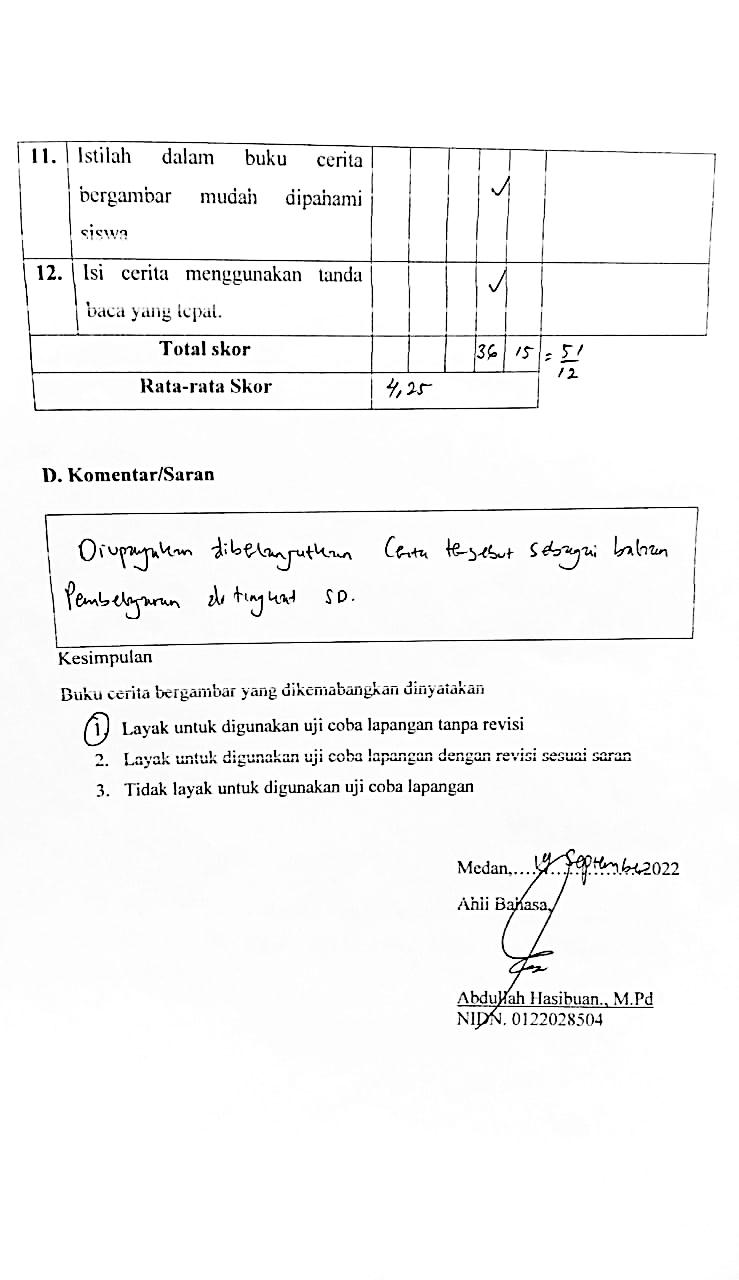 11. Istilah dalam buku cerita
bergambar mudah dipahami
siswa
✓
12. Isi cerita menggunakan tanda
baca yang tepat.
✓
Total skor 36 15 = 51/12
Rata-rata Skor 4,25
D. Komentar/Saran
Diupayakan dibelanjutkan Cerita tersebut sebagai bahan
Pembelajaran di tingkat SD.
Kesimpulan
Buku cerita bergambar yang dikemabangkan dinyatakan
1 Layak untuk digunakan uji coba lapangan tanpa revisi
2. Layak untuk digunakan uji coba lapangan dengan revisi sesuai saran
3. Tidak layak untuk digunakan uji coba lapangan
Medan,.... September 2022
Ahli Bahasa,
Abdullah Hasibuan., M.Pd
NIDN. 0122028504